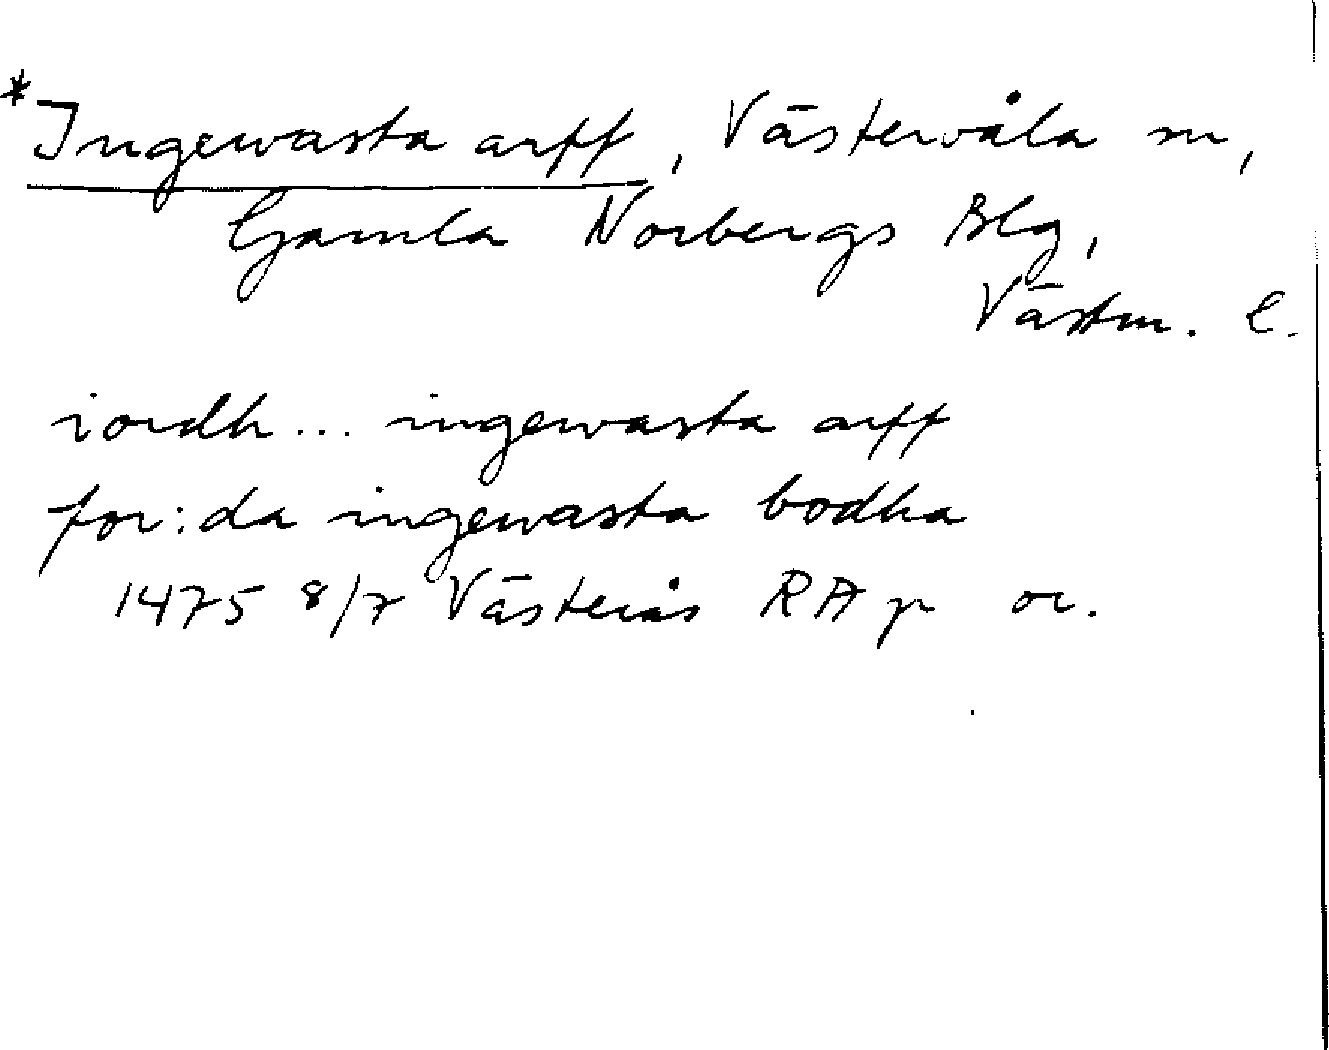 *Ingewasta arff, Västervåla sn,
Gamla Norbergs Blg,
Västm. l.
iordh... ingewasta arff
for:da ingewasta bodha
1475 8/7 Västerås RA p or.